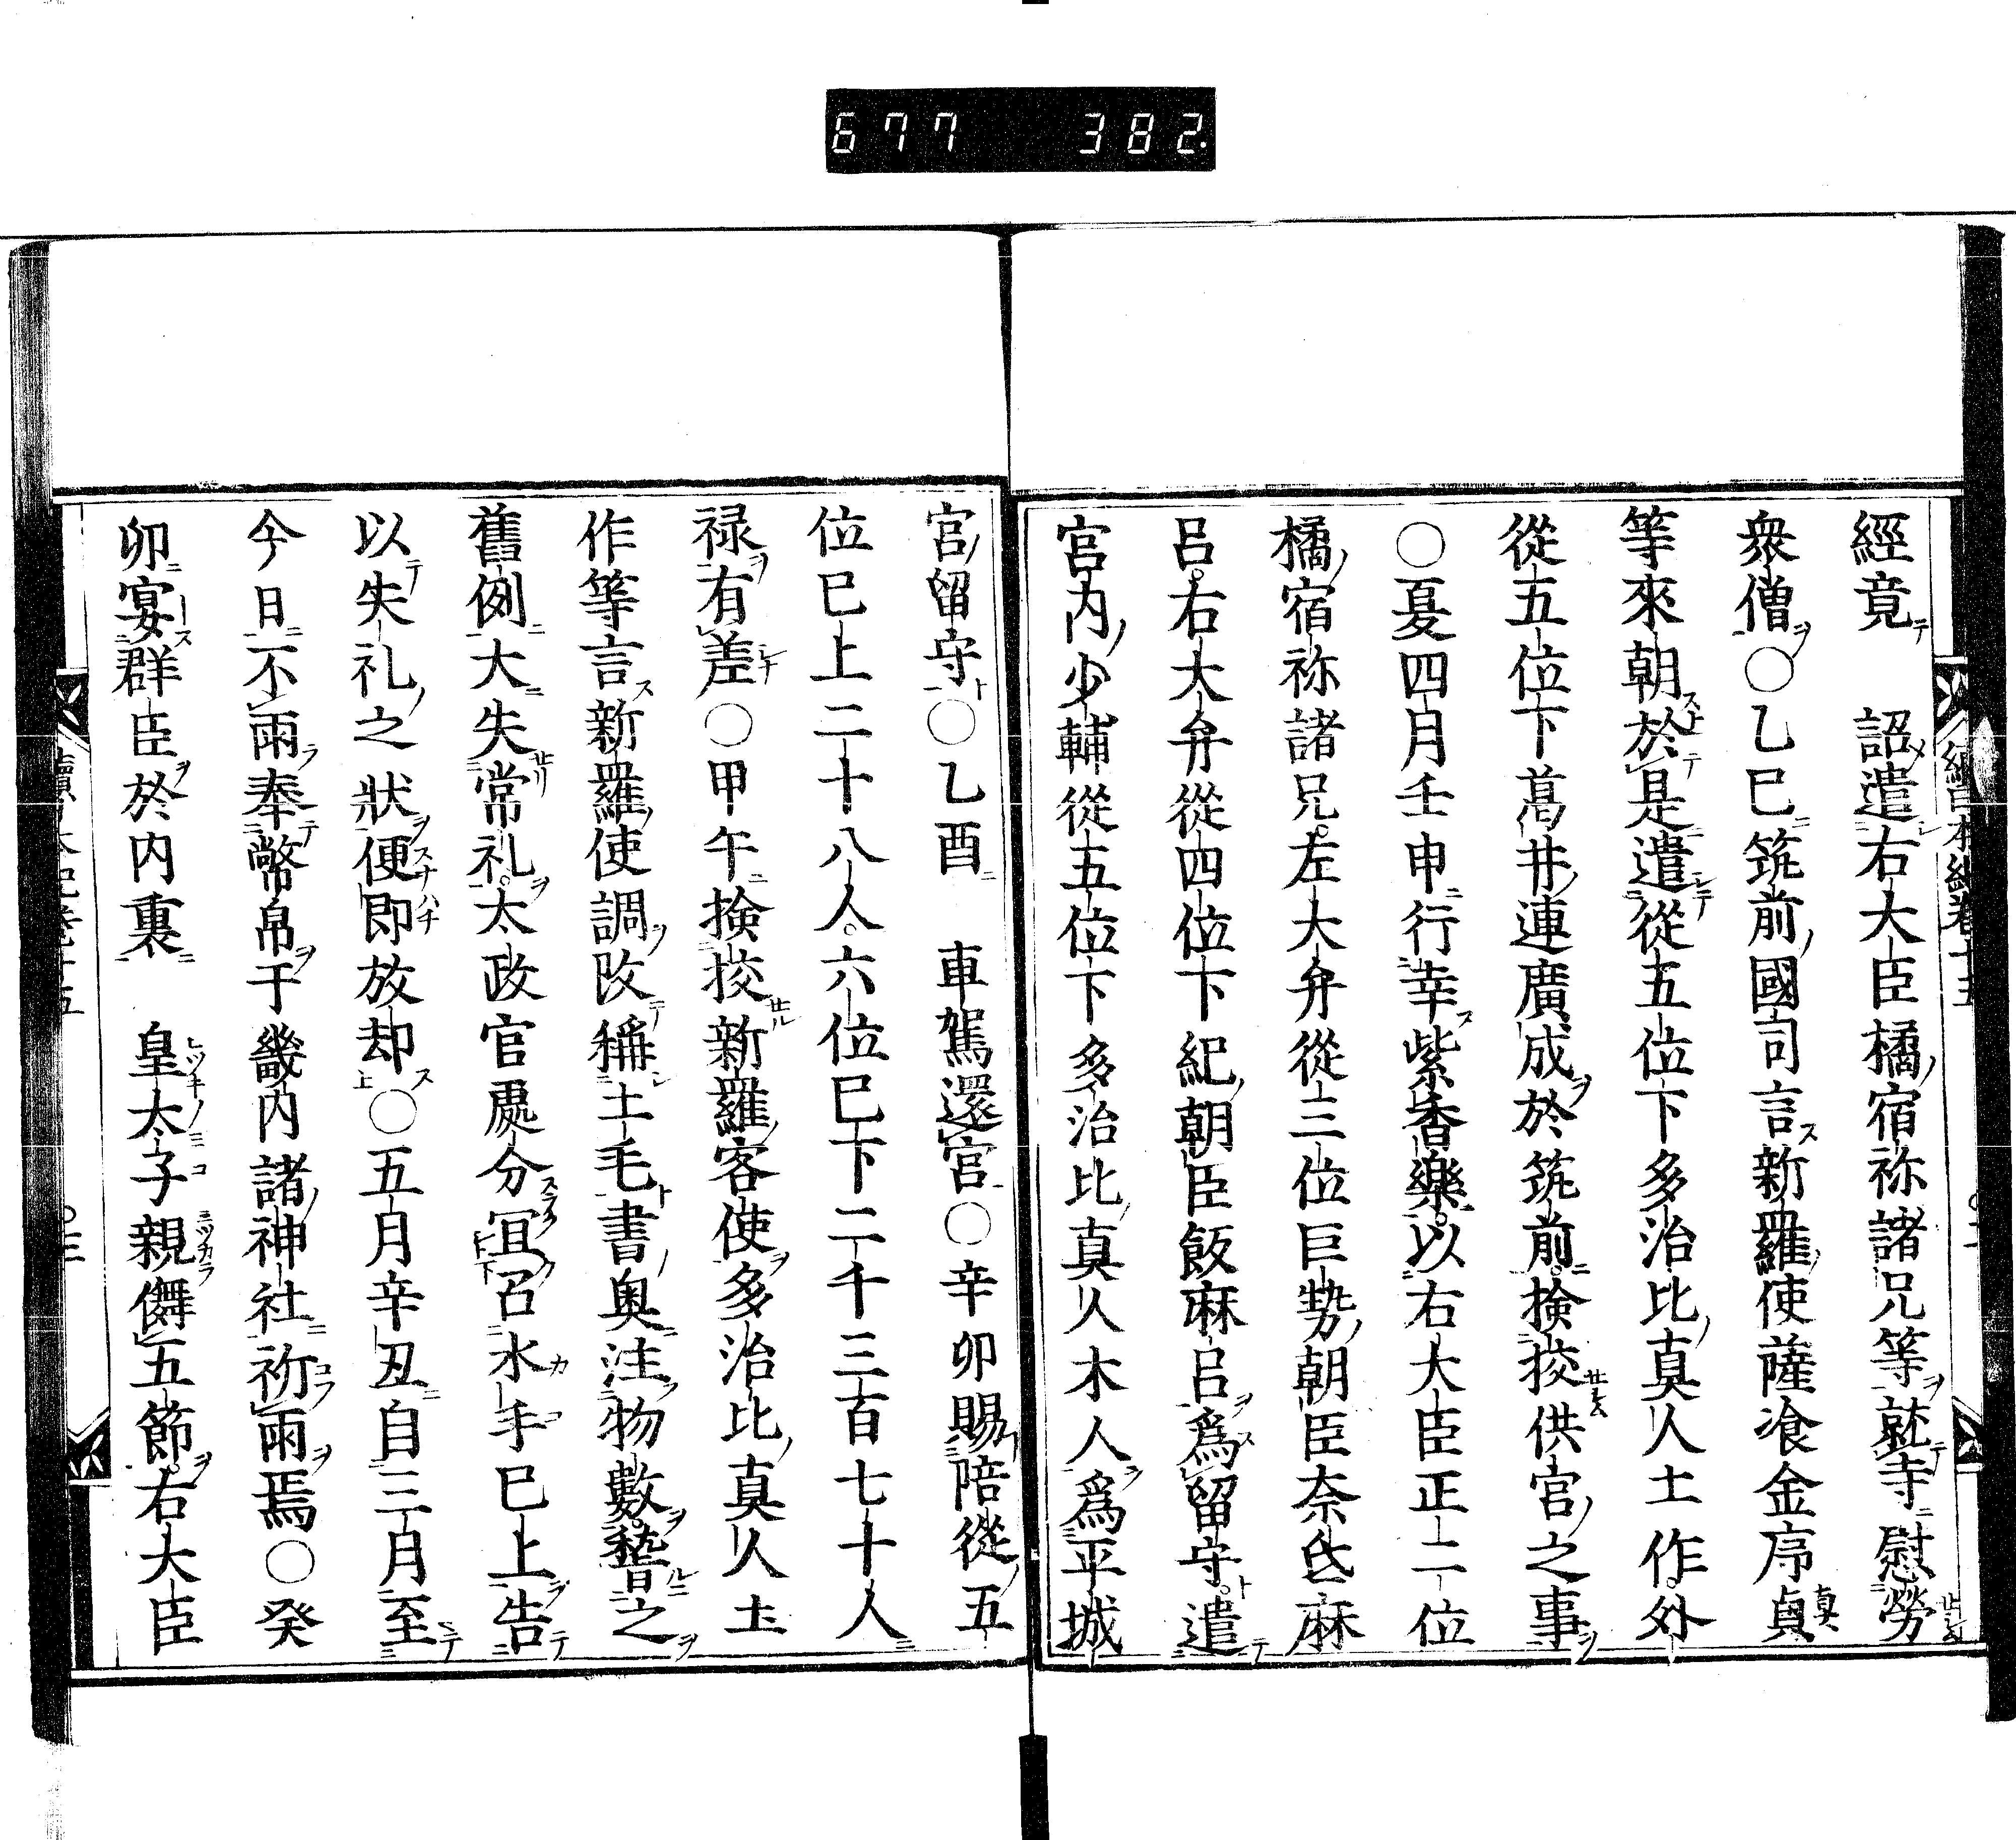 677 382
經竟 詔遣右大臣橘宿祢諸兄等就寺慰勞
衆僧○乙巳筑前國司言新羅使薩飡金序貞
等來朝於是遣從五位下多治比真人土作外
從五位下葛井連廣成於筑前檢挍供官之事
○夏四月壬申行幸紫香樂以右大臣正二位
橘宿祢諸兄左大弁從三位巨勢朝臣奈氐麻
呂右大弁從四位下紀朝臣飯麻呂爲留守遣
宮内少輔從五位下多治比真人木人爲平城
宮留守○乙酉 車駕還宮○辛卯賜陪從五
位已上二十八人六位已下二千三百七十人
禄有差○甲午検挍新羅客使多治比真人土
作等言新羅使調改稱土毛書奥注物數稽之
舊例大失常礼太政官處分宜召水手已上告
以失礼之狀便即放却○五月辛丑自三月至
今日不雨奉幣帛于畿内諸神社祈雨焉○癸
卯宴群臣於内裏 皇太子親儛五節右大臣